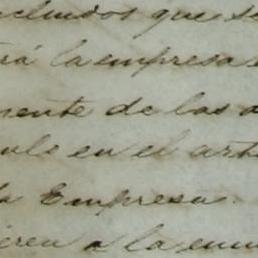 cluidos que se
rá la empresa
mente de las a
ule en el arti
la Empresa.
ieren a la enum